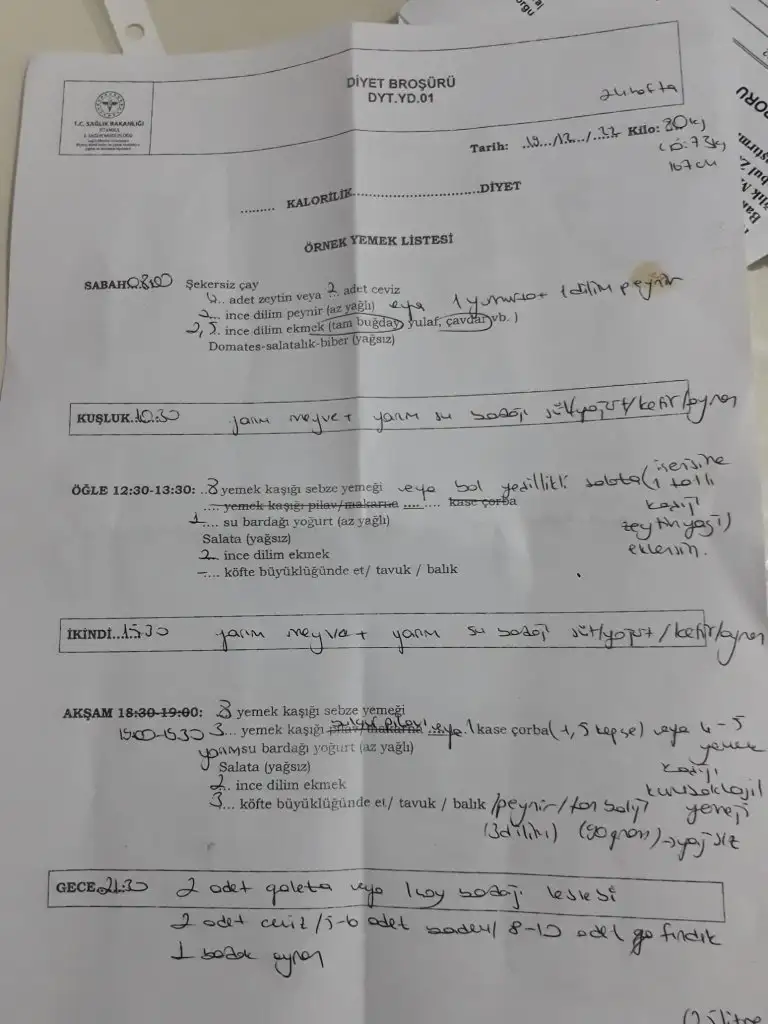 DİYET BROŞÜRÜ
DYT.YD.01
24 hafta
T.C. SAĞLIK BAKANLIĞI
İSTANBUL
Tarih: 19.../12.../.22 Kilo: 80kg
73kg
167cm
......... KALORİLİK.................................DİYET
ÖRNEK YEMEK LİSTESİ
SABAH 08:00 Şekersiz çay
adet zeytin veya 2. adet ceviz
2... ince dilim peynir (az yağlı) veya 1 yumurta + 1 dilim peynir
2,5. ince dilim ekmek (tam buğday, yulaf, çavdar vb. )
Domates-salatalık-biber (yağsız)
KUŞLUK.10:30 yarım meyve + yarım su bardağı süt/yoğurt/kefir/ayran
ÖĞLE 12:30-13:30: ..8 yemek kaşığı sebze yemeği veya bol yeşillikli salata (içerisine
.... yemek kaşığı pilav/makarna .... .... kase çorba 1 tatlı
1.... su bardağı yoğurt (az yağlı) kaşığı
Salata (yağsız) zeytinyağı)
2.. ince dilim ekmek eklensin.
-.... köfte büyüklüğünde et/ tavuk / balık
İKİNDİ...15:30 yarım meyve + yarım su bardağı süt/yoğurt/kefir/ayran
AKŞAM 18:30-19:00: 8 yemek kaşığı sebze yemeği
3... yemek kaşığı bulgur pilavı pilav/makarna veya 1 kase çorba (1,5 kepçe) veya 4-5
yarım su bardağı yoğurt (az yağlı) yemek
Salata (yağsız) kaşığı
2. ince dilim ekmek kurubaklagil
3... köfte büyüklüğünde et/ tavuk / balık /peynir/ton balığı yemeği
(3dilim) (90 gram) → yağsız
GECE.21:30 2 adet galeta veya 1 çay bardağı leblebi
2 adet ceviz /5-6 adet badem/ 8-10 adet fındık
1 bardak ayran